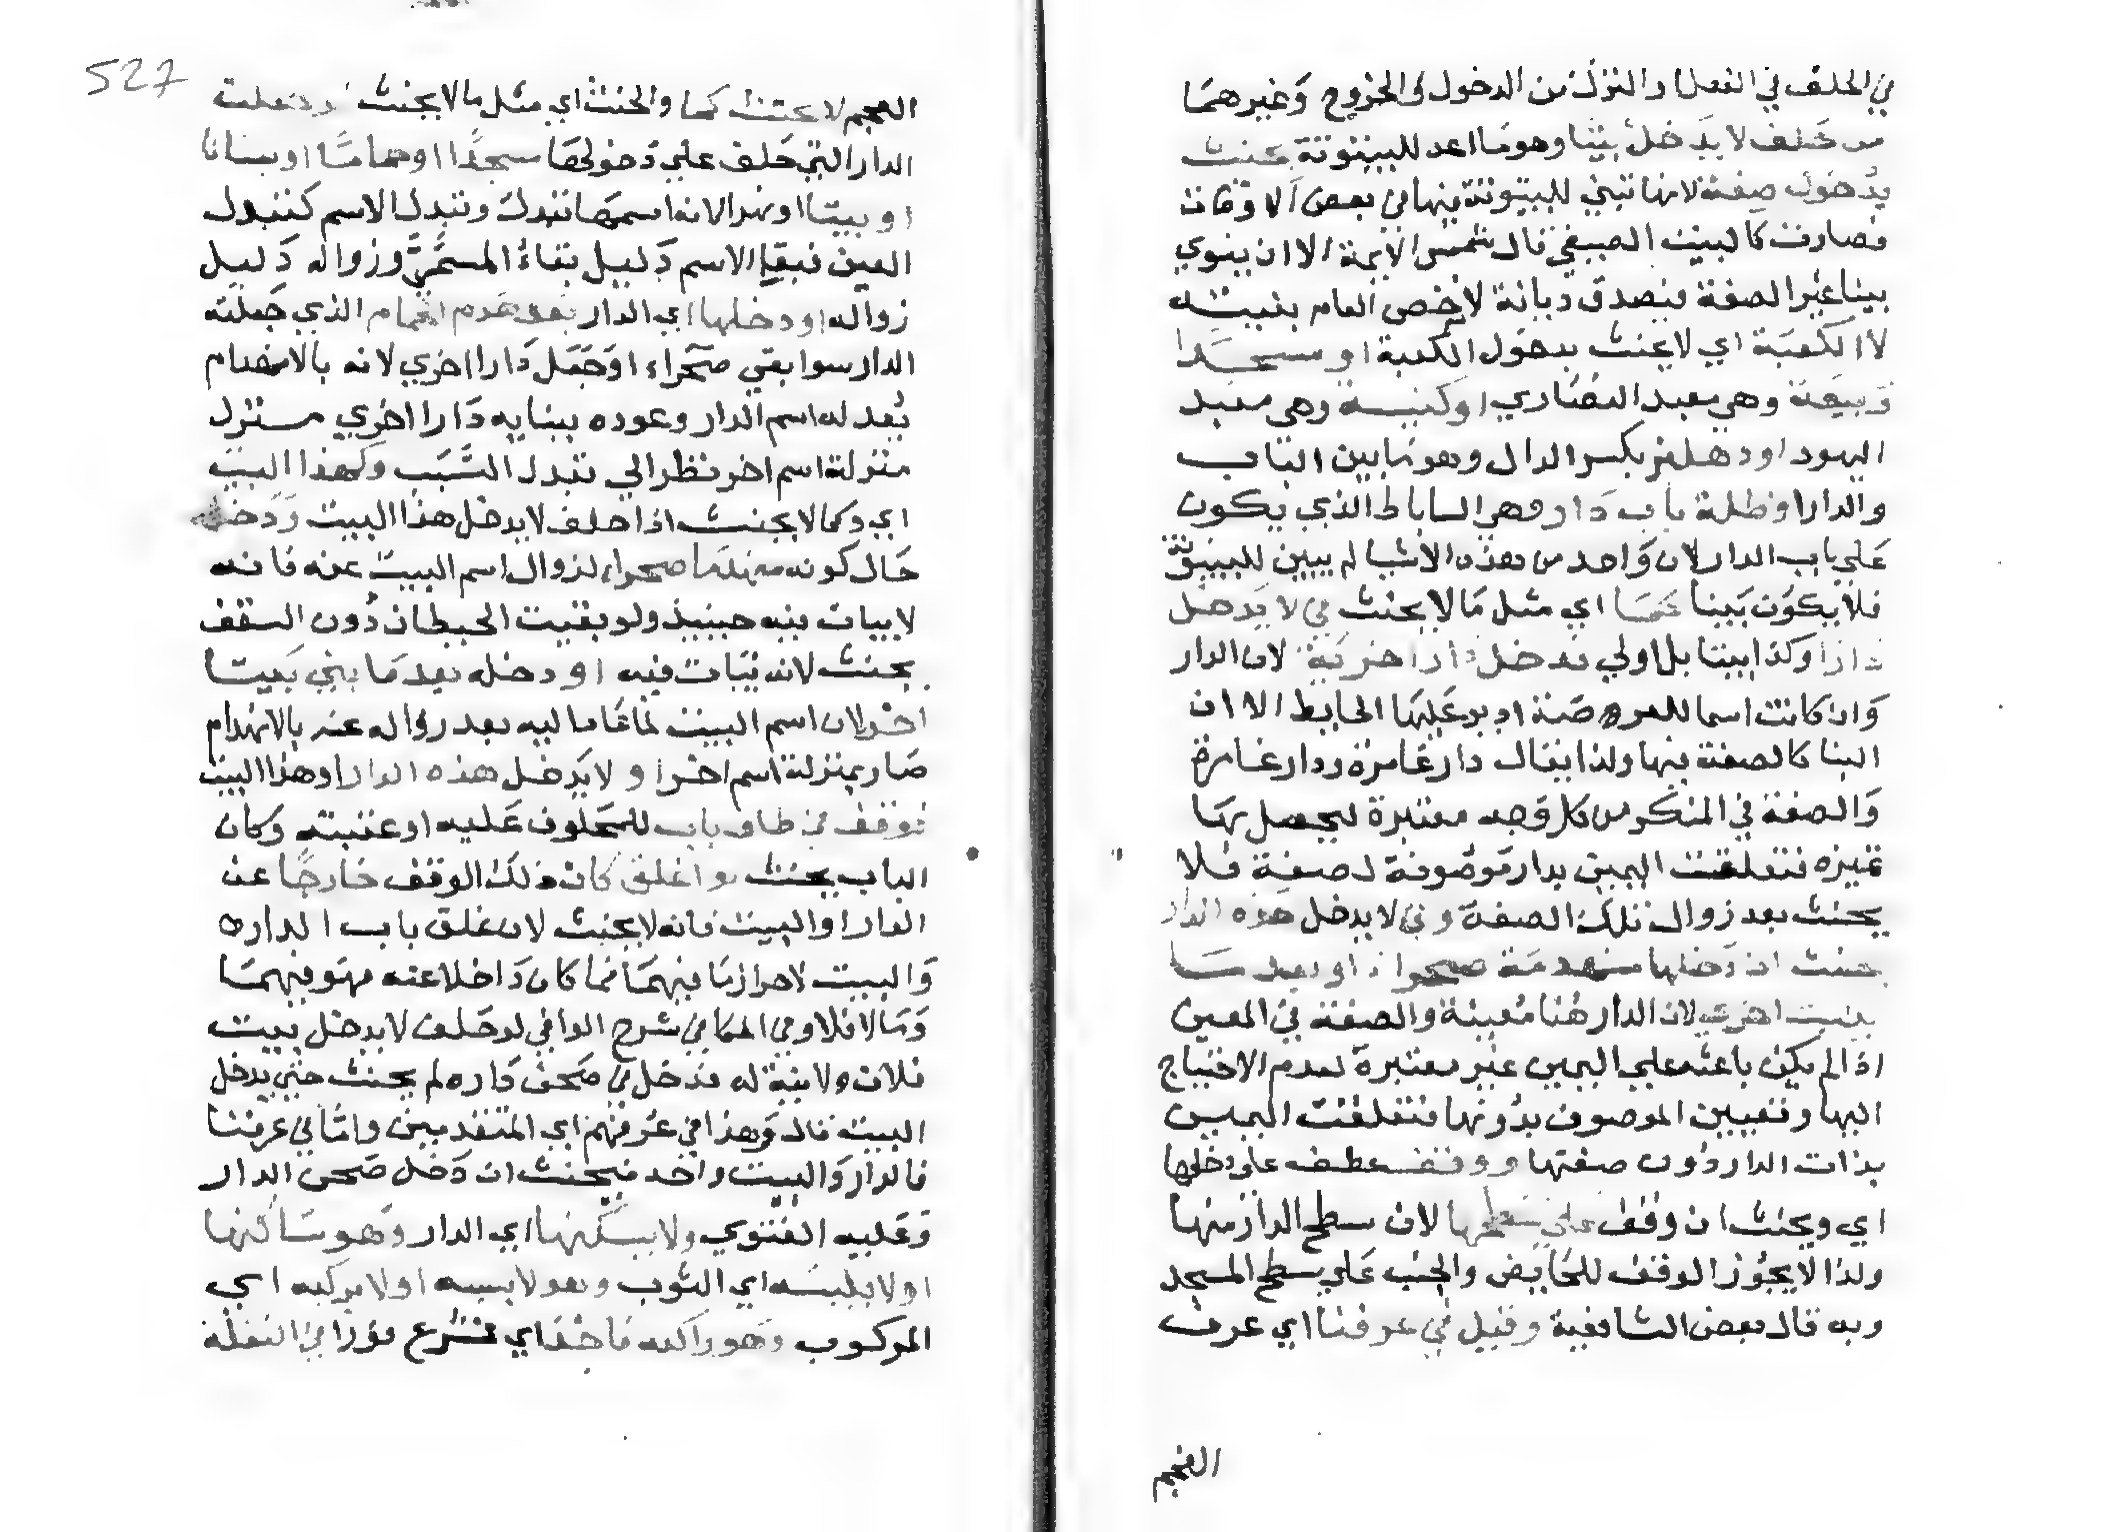 في الحلف في الفعل والترك من الدخول في الخروج وغيرهما
من حلف لا يدخل بيتا وهو ما اعد للبيتوتة يحنث
بدخول صفة لانها تبني للبيتوتة فيها في بعض الاوقات
فصارت كالبيت الصيفي قال شمس الايمة الا ان ينوي
بيتا غير الصفة فيصدق ديانة لا خص العام بنيته
لا الكعبة اي لا يحنث بدخول الكعبة او مسجدا
وبيعة وهي معبد النصاري او كنيسة وهي معبد
اليهود او دهليز بكسر الدال وهو ما بين الباب
والدار او ظلة باب دار وهو الساباط الذي يكون
علي باب الدار لان واحد من هذه الاشيا لم يبين للبيتوتة
فلا يكون بيتا كما اي مثل ما لا يحنث في لا يدخل
دارا وكذا بيتا بل اولي فدخل دارا خربة لان الدار
وان كانت اسما للعرصة ادير عليها الحايط الا ان
البنا كالصفة فيها ولذا يقال دار عامرة ودار غامرة
والصفة في المنكر من كل وجه معتبرة ليحصل بها
تميزه فتعلقت اليمين بدار موصوفة لصفة فلا
يحنث بعد زوال تلك الصفة وفي لا يدخل هذه الدار
يحنث ان دخلها منهدمة صحراء او بعد ما
بنيت اخري لان الدار هنا معينة والصفة في المعين
اذا لم يكن باعثه علي اليمين غير معتبرة لعدم الاحتياج
اليها وتعيين الموصوف بدونها فتعلقت اليمين
بذات الدار دون صفتها ووقف عطف علي دخلها
اي ويحنث ان وقف علي سطحها لان سطح الدار منها
ولذا لا يجوز الوقف للحايض والجنب علي سطح المسجد
وبه قال بعض الشافعية وقيل في عرفنا اي عرف
العجم
527
العجم لا يحنث كما والحنث اي مثل ما لا يحنث لو جعلت
الدار التي حلف علي دخولها مسجدا او حماما او بستانا
او بيتا او نهرا لانه اسمها تبدل وتبدل الاسم كتبدل
العين فبقا الاسم دليل بقاء المسمي وزواله دليل
زواله او دخلها اي الدار بعد هدم الحمام الذي جعلته
الدار سوا بقي صحراء او جعل دارا اخري لانه بالانهدام
بعد له اسم الدار وعوده ببنايه دارا اخري منزل
منزلة اسم اخر نظرا الي تبدل السبب وكهذا البيت
اي وكما لا يحنث اذا حلف لا يدخل هذا البيت ودخله
حال كونه منهدما صحراء لزوال اسم البيت عنه فانه
لا يبات فيه حينيذ ولو بقيت الحيطان دون السقف
يحنث لانه يبات فيه او دخله بعد ما بني بيتا
اخر لان اسم البيت لما عاد اليه بعد زواله عنه بالانهدام
صار بمنزلة اسم اخر او لا يدخل هذه الدار او هذا البيت
فوقف في طاق باب للمحلوف عليه او عتبته وكان
الباب بحيث لو اغلق كان ذلك الوقف خارجا عن
الدار او البيت فانه لا يحنث لان غلق باب الدار ه
والبيت لاحراز ما فيهما فما كان داخلا عنه فهو فيهما
وما لا فلا وفي الكافي شرح الوافي لو حلف لا يدخل بيت
فلان ولا نية له فدخل في صحن داره لم يحنث حتي يدخل
البيت قال وهذا في عرفهم اي المتقدمين واما في عرفنا
فالدار والبيت واحد فيحنث ان دخل صحن الدار
وعليه الفتوي ولا يسكنها اي الدار وهو ساكنها
او لا يلبسه اي الثوب وهو لابسه او لا يركبه اي
المركوب وهو راكبه فاخذ اي شرع فورا في النقلة